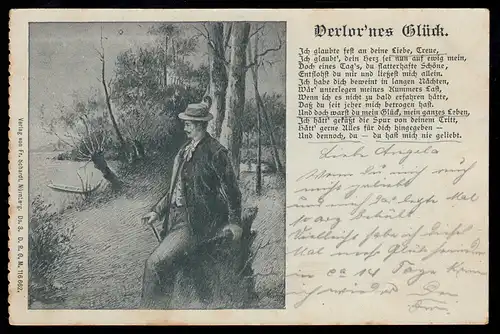 Verlor'nes Glück.
Ich glaubte fest an deine Liebe, Treue,
Ich glaubt', dein Herz sei nun auf ewig mein,
Doch eines Tag's, du flatterhafte Schöne,
Entflohst du mir und ließest mich allein.
Ich habe dich beweint in langen Nächten,
Wär' unterlegen meines Kummers Last,
Wenn ich es nicht zu bald erfahren hätte,
Daß du seit jeher mich betrogen hast.
Und doch warst du mein Glück, mein ganzes Leben,
Ich hätt' geküßt die Spur von deinem Tritt,
Hätt' gerne Alles für dich hingegeben —
Und dennoch, du — du hast mich nie geliebt.
Liebe Angela
Wenn Du mich auch
nicht
und mich das letzte Mal
Vielleicht habe ich dieses
Mal mehr Glück
in ca 14 Tage
ich wieder
Verlag von Fr. Schardt, Nürnberg. Ds. 8. D. R. G. M. 116 062.